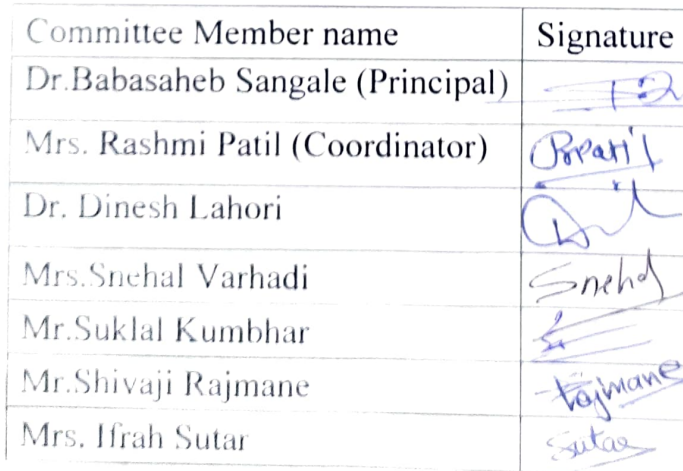 Committee Member name Signature
Dr.Babasaheb Sangale (Principal)
Mrs. Rashmi Patil (Coordinator) RPatil
Dr. Dinesh Lahori
Mrs.Snehal Varhadi Snehal
Mr.Suklal Kumbhar
Mr.Shivaji Rajmane Rajmane
Mrs. Ifrah Sutar Sutar